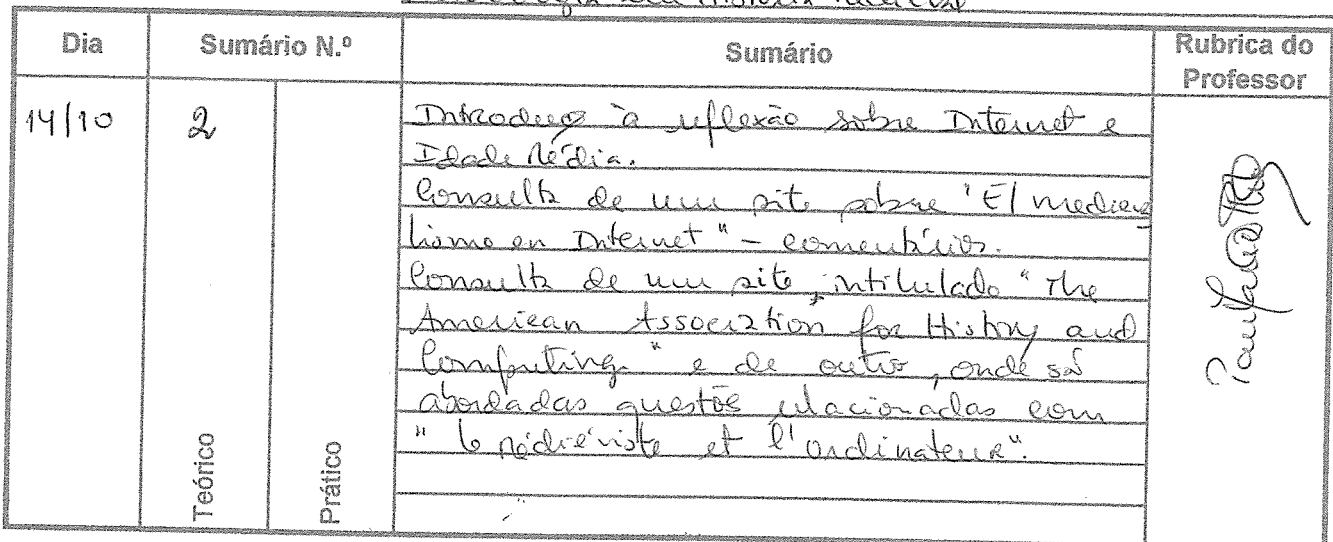 da História Medieval
Dia
Sumário N.º
Sumário
Rubrica do
Professor
14/10
2
Introdução à reflexão sobre Internet e
Idade Média.
Consulta de um site sobre "El medieva
lismo en Internet" – comentários.
Consulta de um site, intitulado "The
American Association for History and
Computing" e de outro, onde são
abordadas questões relacionadas com
"Le médiéviste et l'ordinateur".
Teórico
Prático